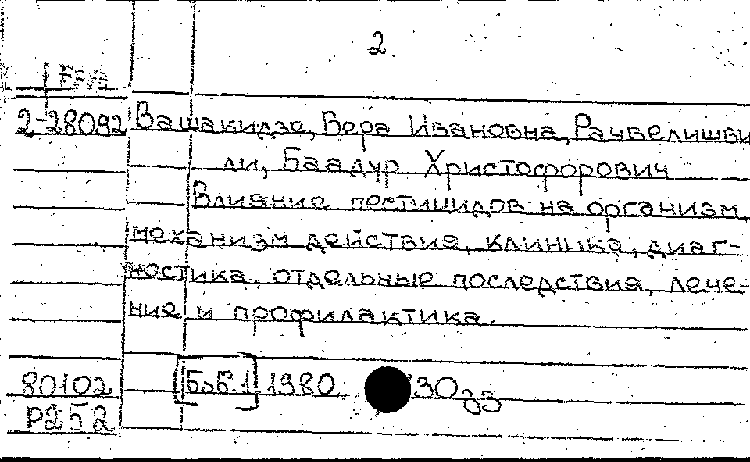 2.
2-28092 Вашакидзе, Вера Ивановна, Рачвелишви
ли, Баадур Христофорович
Влияние пестицидов на организм,
механизм действия, клиника, диаг-
ностика, отдельные последствия, лече-
ние и профилактика.
80102 [Б.г.] 1980. 30
Р252